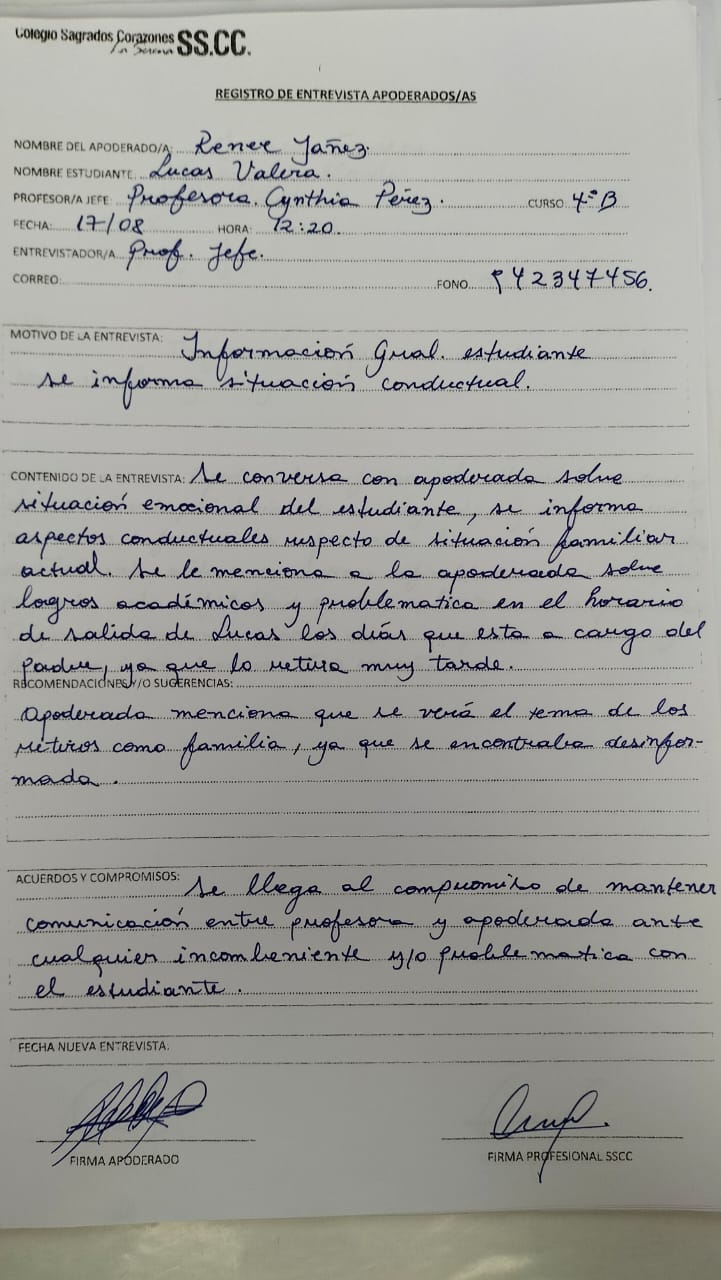 Colegio Sagrados Corazones SS.CC.
La Serena
REGISTRO DE ENTREVISTA APODERADOS/AS
NOMBRE DEL APODERADO/A: Renee Yañez.
NOMBRE ESTUDIANTE Lucas Valera.
PROFESOR/A JEFE Profesora. Cynthia Pérez. CURSO 4º B
FECHA: 17/08 HORA: 12:20.
ENTREVISTADOR/A Prof. Jefe.
CORREO: FONO 942347456.
MOTIVO DE LA ENTREVISTA: Información Gral. estudiante
se informa situación conductual.
CONTENIDO DE LA ENTREVISTA: Se conversa con apoderada sobre
situación emocional del estudiante, se informa
aspectos conductuales respecto de situación familiar
actual. Se le menciona a la apoderada sobre
logros académicos y problematica en el horario
de salida de Lucas los días que esta a cargo del
padre, ya que lo retira muy tarde.
RECOMENDACIONES Y/O SUGERENCIAS:
Apoderada menciona que se verá el tema de los
retiros como familia, ya que se encontraba desinfor-
mada.
ACUERDOS Y COMPROMISOS: Se llega al compromiso de mantener
comunicación entre profesora y apoderada ante
cualquier incombeniente y/o problematica con
el estudiante.
FECHA NUEVA ENTREVISTA:
FIRMA APODERADO
FIRMA PROFESIONAL SSCC